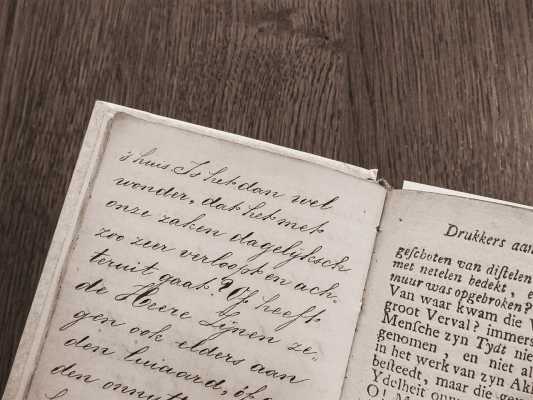 's huis. Is het dan wel
wonder, dat het met
onze zaken dagelijksch
zoo zeer verloopt en ach-
teruit gaat? Of heeft
de Heere Zijnen ze-
gen ook elders aan
den luiaard, óf aan
den onnutt
Drukkers aan
geſchoten van diſtelen
met netelen bedekt, e
muur was opgebroken?
Van waar kwam die V
groot Verval? immers
Menſche zyn Tydt nie
genomen, en niet al
in het werk van zyn Ak
beſteedt, maar die gev
Ydelheit onnu
O!